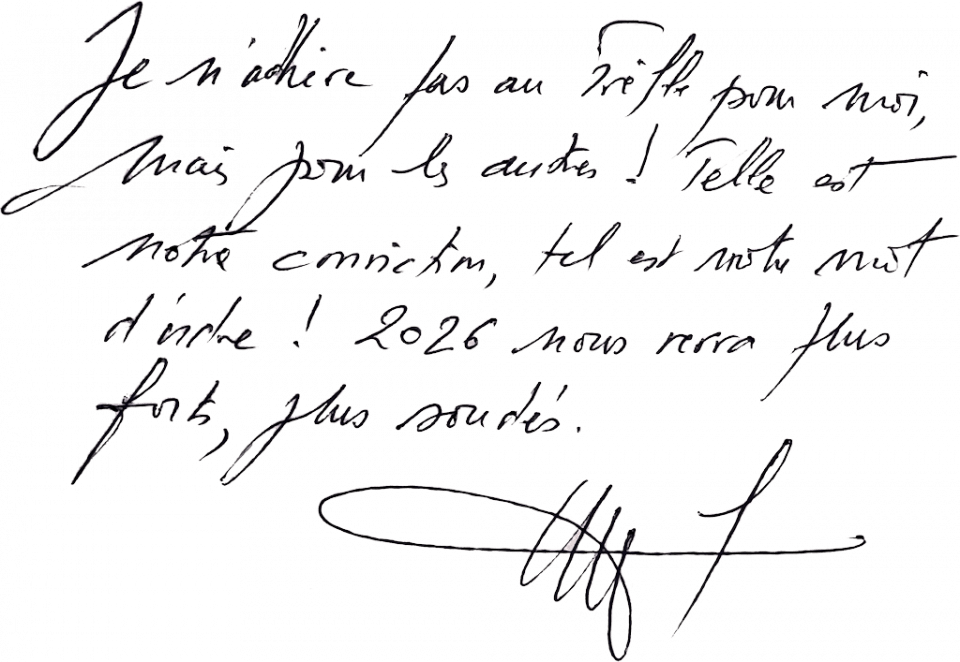 Je n'adhère pas au Trèfle pour moi,
mais pour les autres ! Telle est
notre conviction, tel est notre mot
d'ordre ! 2026 nous verra plus
forts, plus soudés.